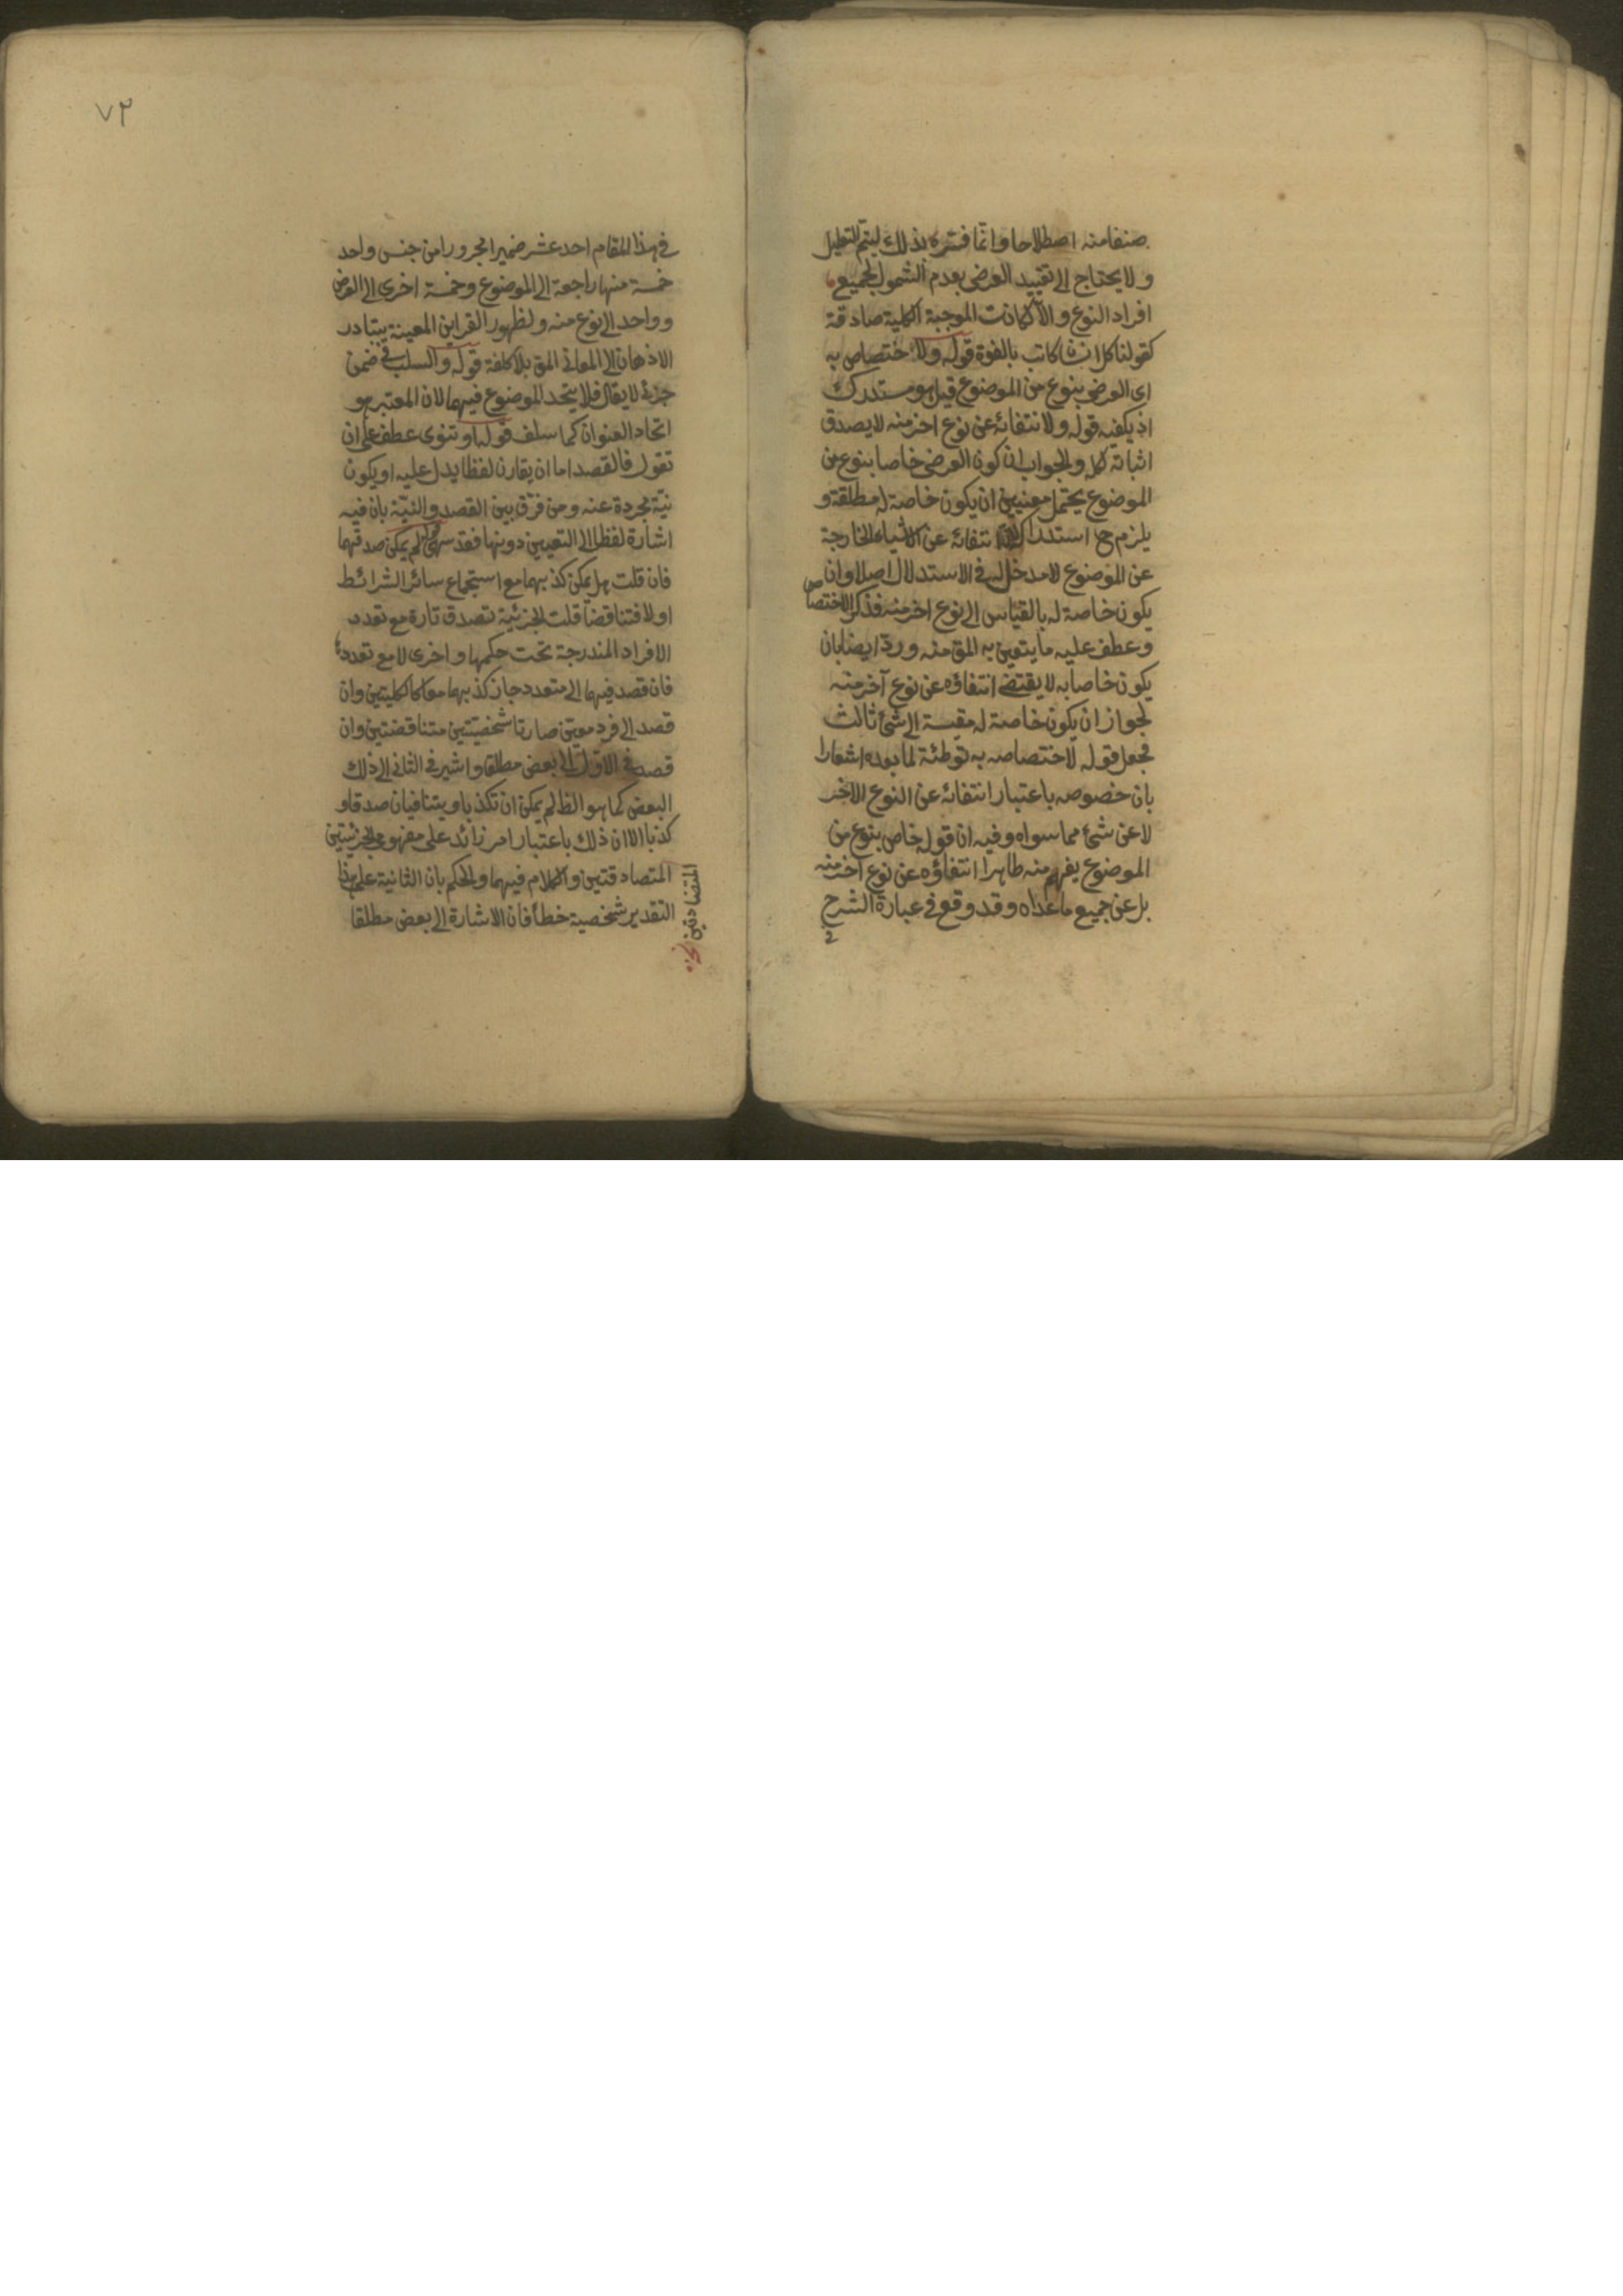 صنفا منه اصطلاحا وانما فسره بذلك ليتم التعليل
ولا يحتاج الى تقييد العرضى بعدم الشمول لجميع
افراد النوع والا لكانت الموجبة الكلية صادقة
كقولنا كل انسان كاتب بالقوة قوله ولاختصاص به
اى العرضى بنوع من الموضوع قيل هو مستدرك
اذ يكفيه قوله ولانتفائه عن نوع اخر منه لا يصدق
اثباته لكله والجواب ان كون العرضى خاصا بنوع من
الموضوع يحتمل معنيين ان يكون خاصة له مطلقة و
يلزم ح استدراك انتفائه عن الاشياء الخارجة
عن الموضوع لا مدخل له فى الاستدلال اصلا وان
يكون خاصة له بالقياس الى نوع اخر منه فذكر الاختصاص
وعطف عليه ما يتعين به المق منه ورد ايضا بان
يكون خاصا به لا يقتضى انتفاؤه عن نوع آخر منه
لجواز ان يكون خاصة له مقيسة الى شئ ثالث
فجعل قوله لاختصاصه به توطئة لما بعده اشعارا
بان خصوصه باعتبار انتفائه عن النوع الاخر
لا عن شئ مما سواه وفيه ان قوله خاص بنوع من
الموضوع يفهم منه ظاهرا انتفاؤه عن نوع آخر منه
بل عن جميع ما عداه وقد وقع فى عبارة الشرح
فى
٧٢
فى هذا المقام احد عشر ضميرا مجرورا من جنس واحد
خمسة منها راجعة الى الموضوع وخمسة اخرى الى العرضى
وواحد الى نوع منه ولظهور القراين المعينة يتبادر
الاذهان الى المعانى المق بلا كلفة قوله والسلب فى ضمن
جزئى لا يقال فلا يتحد الموضوع فيهما لان المعتبر هو
اتحاد العنوان كما سلف قوله او تنوى عطف على ان
تقول فالقصد اما ان يقارن لفظا يدل عليه او يكون
نية مجردة عنه ومن فرق بين القصد والنية بان فيه
اشارة لفظا الى التعيين دونها فقد سهى قوله لم يمكن صدقهما
فان قلت هل يمكن كذبهما مع استجماع سائر الشرائط
اولا فتناقضا قلت الجزئية تصدق تارة مع تعدد
الافراد المندرجة تحت حكمها واخرى لا مع تعدد
فان قصد فيهما الى متعدد جاز كذبهما معا كالكليتين وان
قصد الى فرد معين صارتا شخصيتين متناقضتين وان
قصد فى الاول الى بعض مطلقا واشير فى الثانى الى ذلك
البعض كما هو الظ لم يمكن ان تكذبا ويتنافيان صدقا و
كذبا الا ان ذلك باعتبار امر زائد على مفهومى الجزئيتين
المتصادقتين والكلام فيهما والحكم بان الثانية على هذا
التقدير شخصية خطأ فان الاشارة الى بعض مطلقا
المتضادتين